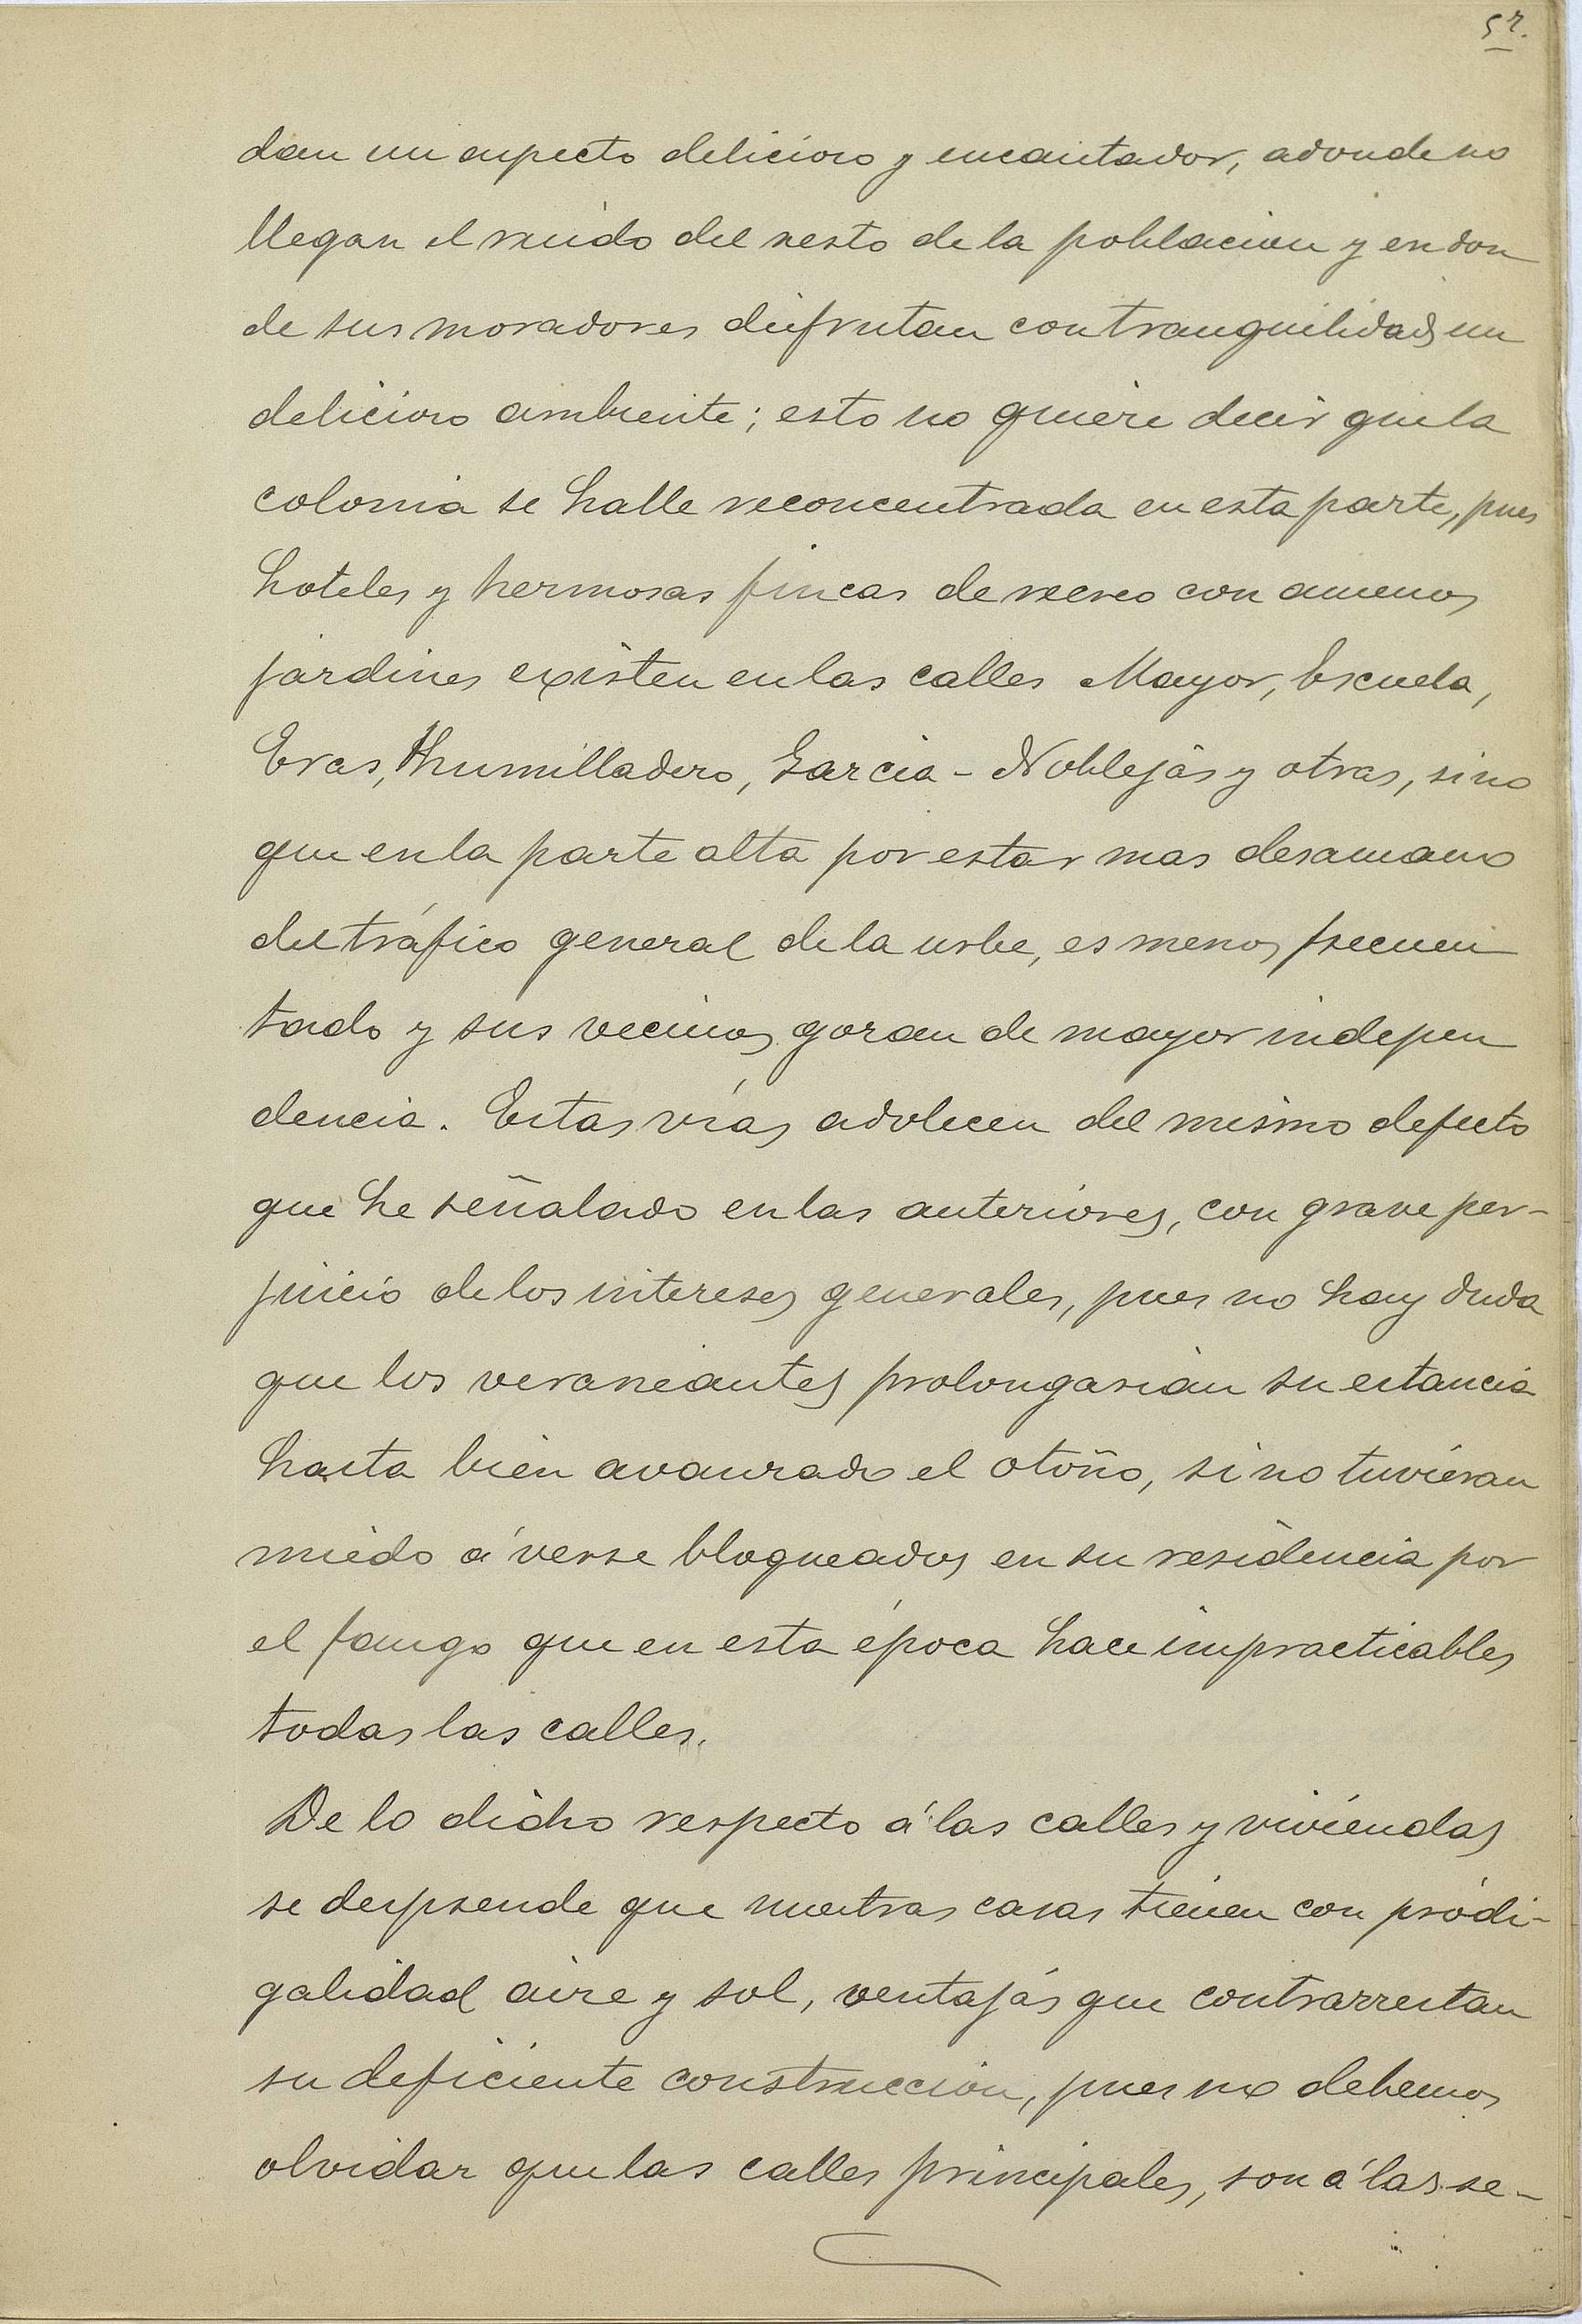 5r.
dan un aspecto delicioso y encantador, adonde no
llegan el ruido del resto de la poblacion y en don
de sus moradores disfrutan con tranquilidad un
delicioso ambiente; esto no quiere decir que la
colonia se halle reconcentrada en esta parte, pues
hoteles y hermosas fincas de recreo con amenos
jardines existen en las calles Mayor, Escuela,
Eras, Humilladero, Garcia-Noblejas y otras, sino
que en la parte alta por estar mas desamano
del tráfico general de la urbe, es menos frecuen
tado y sus vecinos gozan de mayor indepen
dencia. Estas vías adolecen del mismo defecto
que he señalado en las anteriores, con grave per-
juicio de los intereses generales, pues no hay duda
que los veraneantes prolongarian su estancia
hasta bien avanzado el otoño, si no tuvieran
miedo á verse bloqueados en su residencia por
el fango que en esta época hace impracticables
todas las calles.
De lo dicho respecto á las calles y viviendas
se desprende que nuestras casas tienen con pródi-
galidad aire y sol, ventajas que contrarrestan
su deficiente construccion, pues no debemos
olvidar que las calles principales, son á las se-